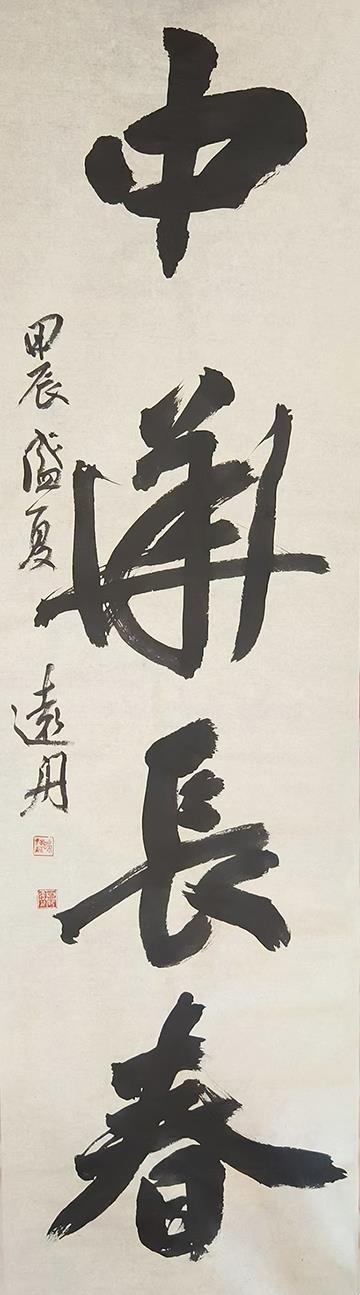 中華長春
甲辰盛夏 遠丹